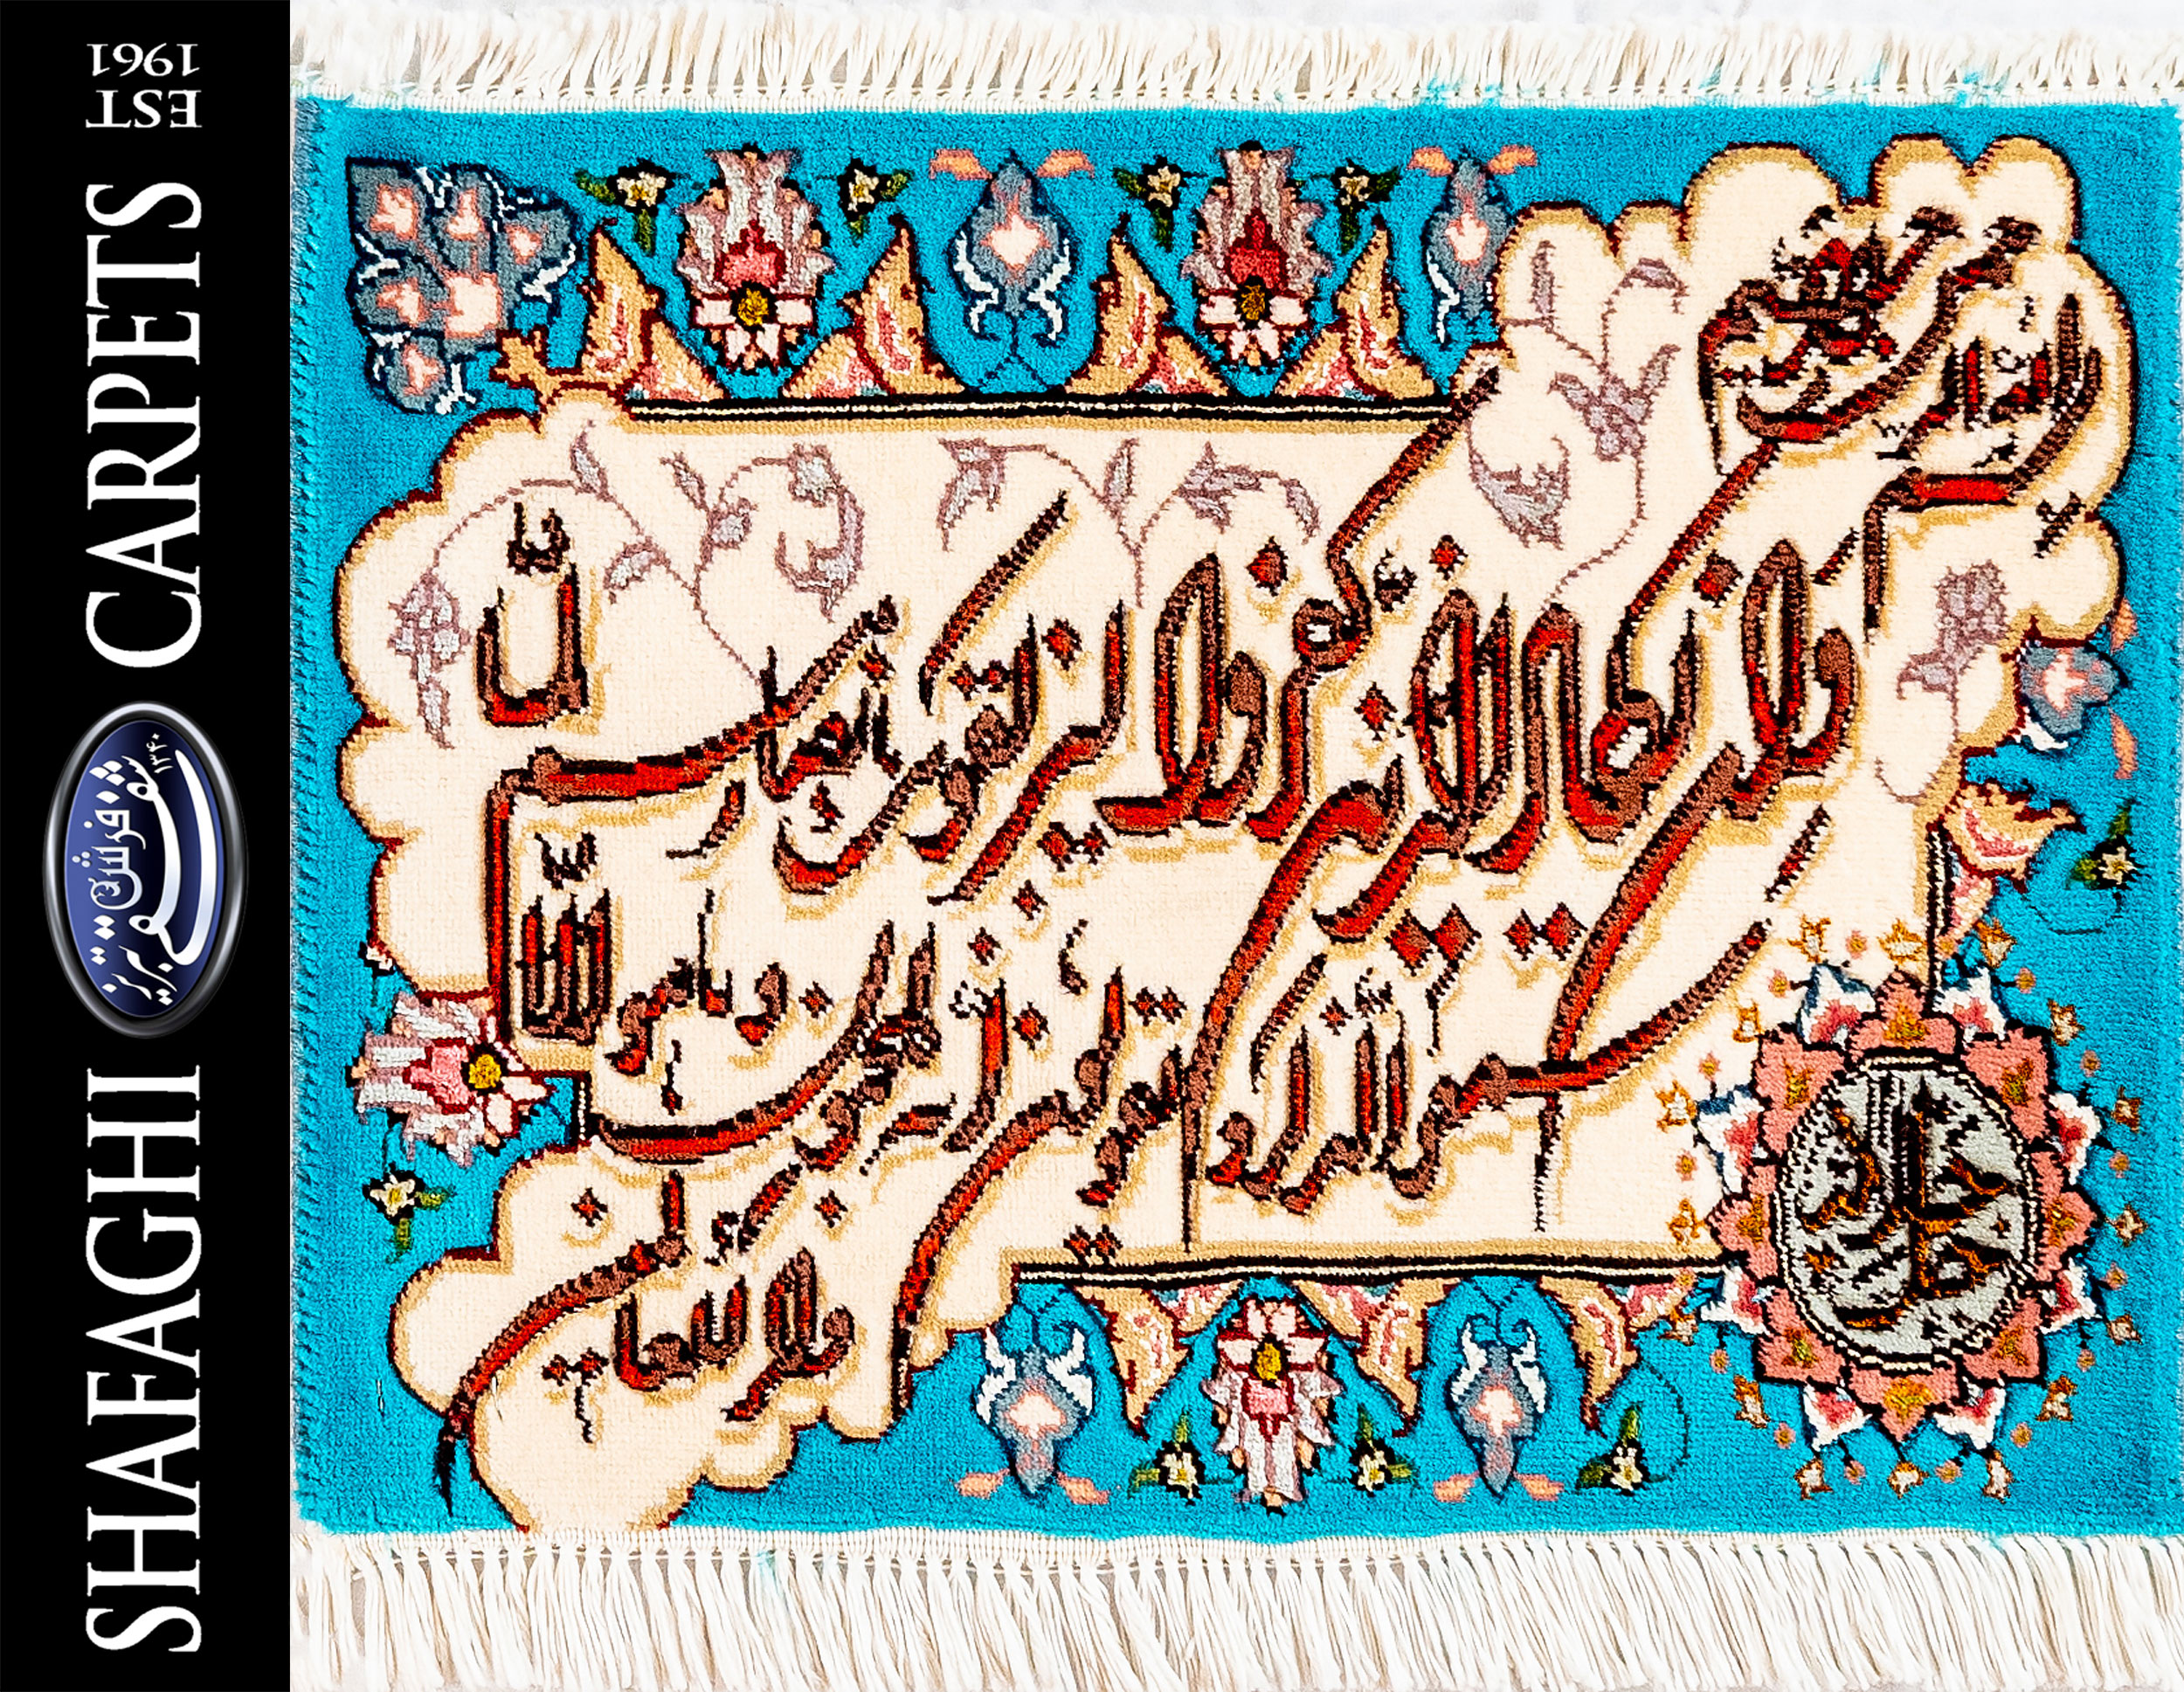 SHAFAGHI CARPETS
EST
1961
۱۳۴۰
فرش
تبریز
بسم الله الرحمن الرحیم
وان یکاد الذین کفروا لیزلقونک بابصارهم لما
سمعوا الذکر و یقولون انه لمجنون و ما هو الا
ذکر للعالمین